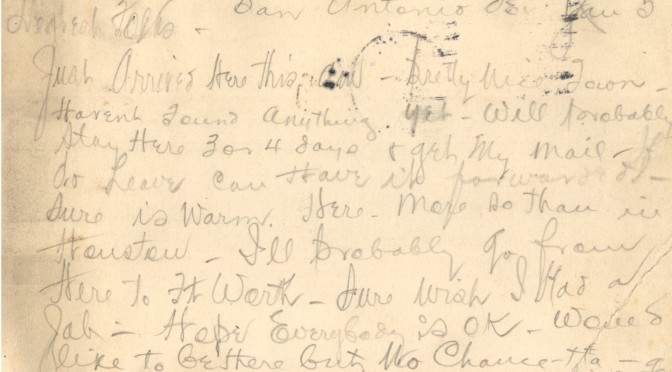 San Antonio Jan 5
Dearest Folks -
Just Arrived Here this - Pretty Nice Town -
Havent Found Anything yet - Will Probably
Stay Here 3 or 4 days & get My Mail - If
do Leave Can Have it forwarded -
Sure is Warm Here - More So Than in
Houston - I'll Probably Go From
Here To Ft Worth - Sure Wish I Had a
Job - Hope Everybody is OK - Would
like to be There but No Chance